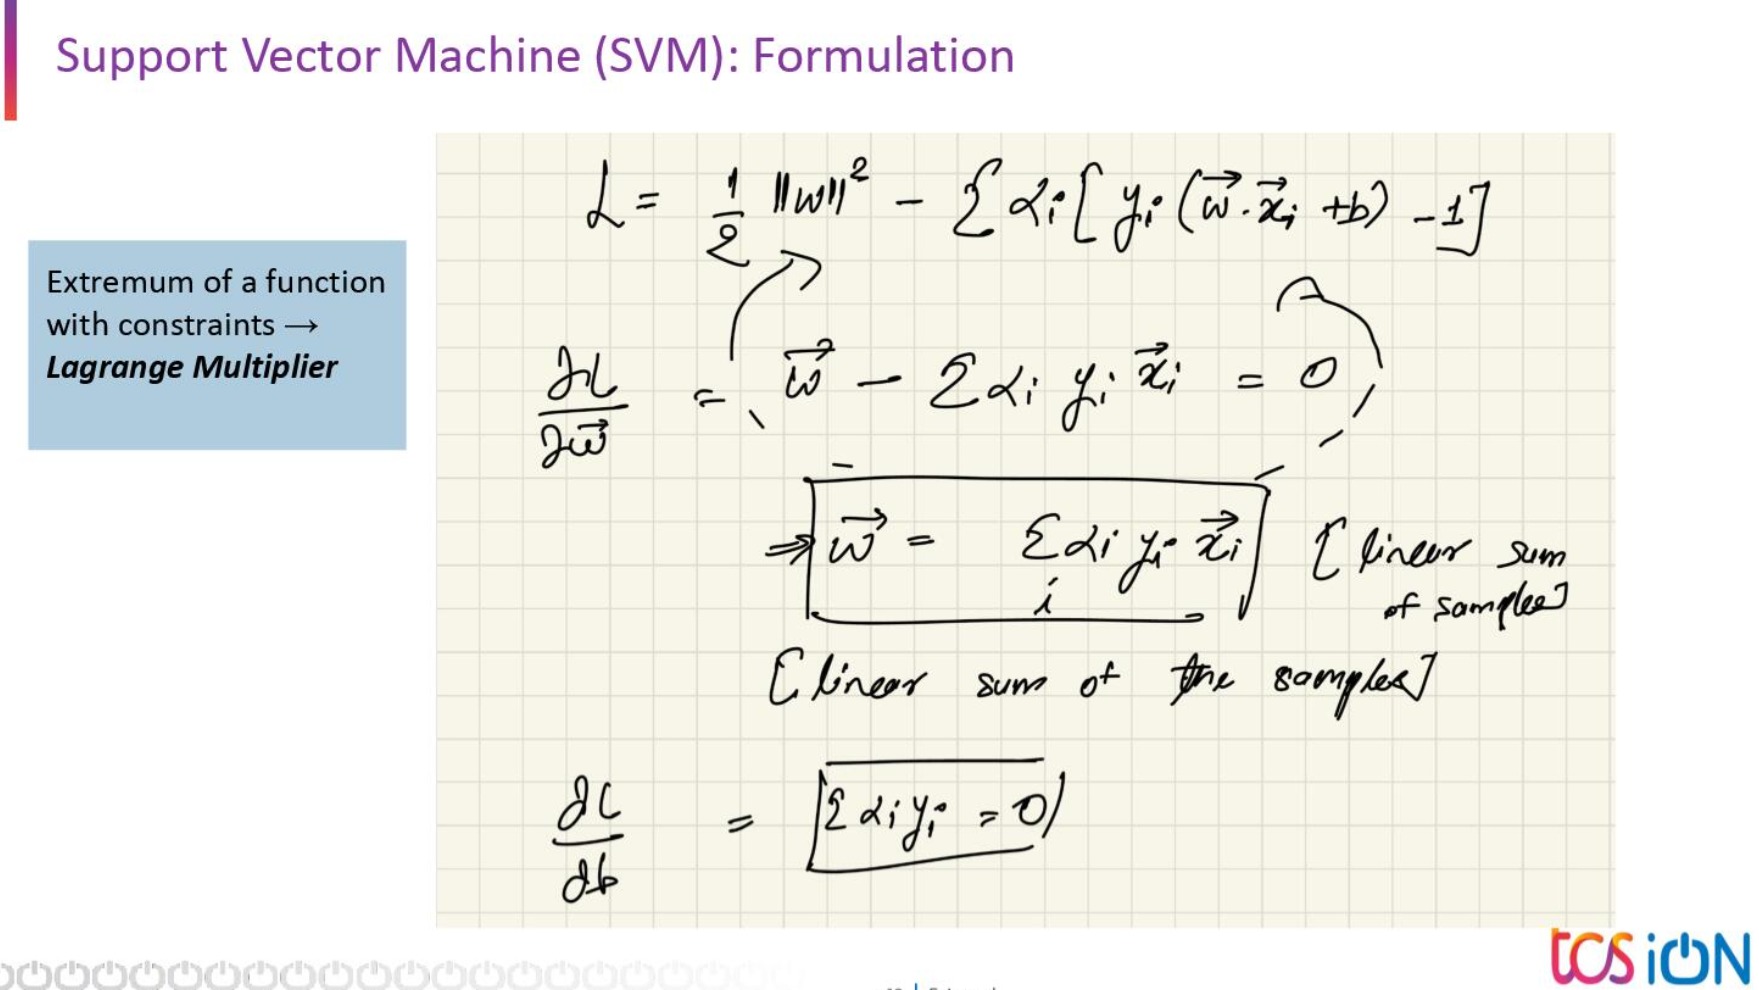 Support Vector Machine (SVM): Formulation
Extremum of a function
with constraints →
Lagrange Multiplier
L = 1/2 ||w||² - Σ αi [ yi (w⃗ . x⃗i + b) - 1 ]
∂L/∂w⃗ = w⃗ - Σ αi yi x⃗i = 0
⇒ w⃗ = Σi αi yi x⃗i [ linear sum
of samples ]
[ linear sum of the samples ]
∂L/∂b = Σ αi yi = 0
tcs iON